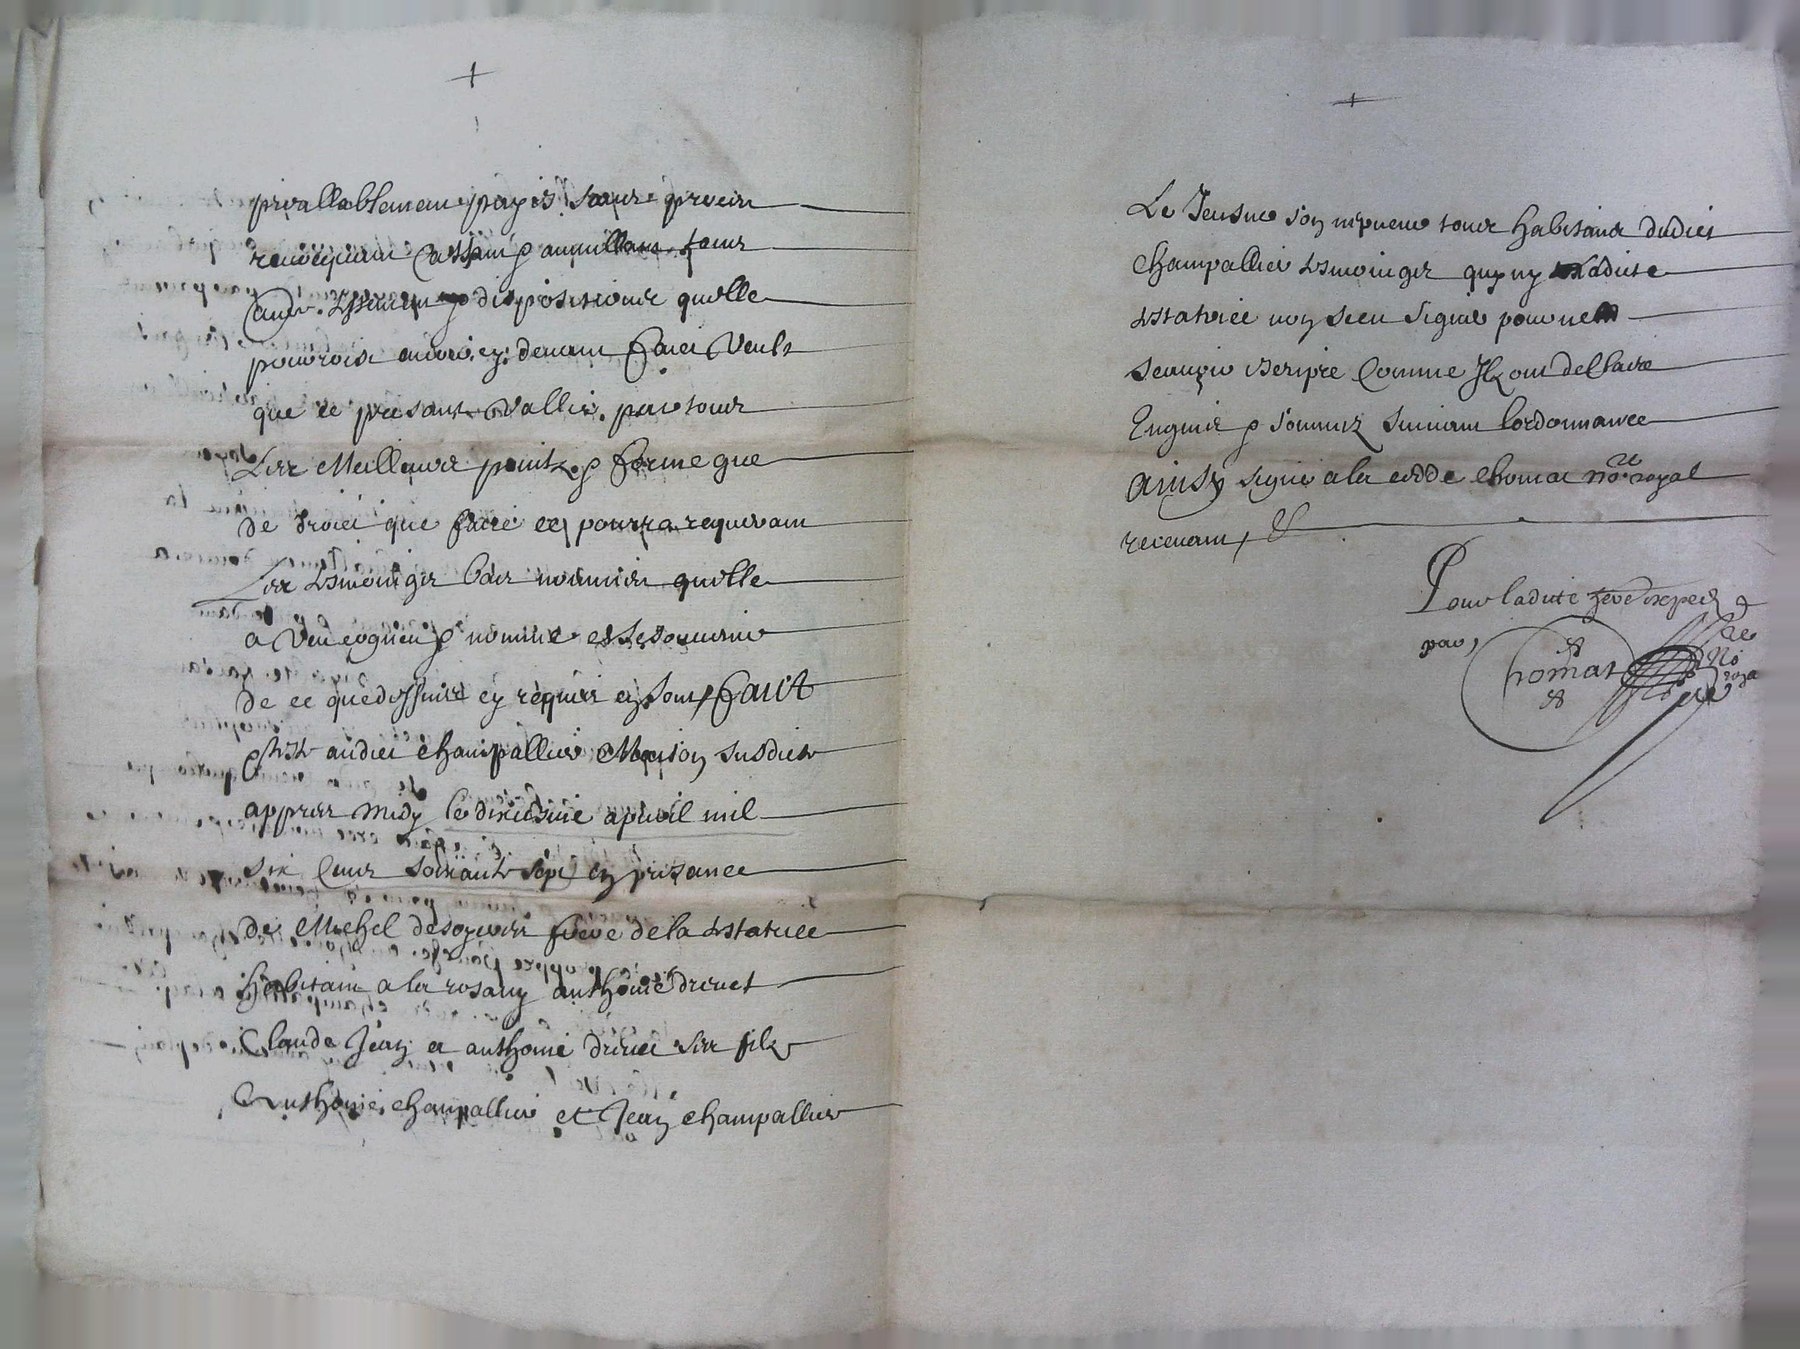 +
preallablement payés sans
revocquant Cassant & annullant tous
autres & dispositions quelle
pourroit avoir cy devant faict Veult
que ce presant Vallie par tous
Les Meilleures pointz & forme que
de droict que faire ce pourra requerant
Les tesmoinger bas nommés quelle
a Veu cogneu & nommé & se souvenir
de ce que dessus ey requis ey sont, Faict
audict champallier Maison susdicte
appres midy le dixiesme apvril mil
six Cens soixante sept en presance
de Michel desoyeres frere de la testatrice
habitant a la rosany anthoine drevet
Claude Jean et anthoine drevet ses filz
Anthoine champallier et Jean champallier
+
Le Jeusne son nepveu tous habitans dudict
champallier tesmoinger quy ny ladicte
testatrice n'on sceu signé pour ne
scavoir escripre Comme Ilz ont declaré
Enquis & sommez suivant lordonnance
ainsy signé a la cedde thomas nore royal
recevant, &
Pour ladicte here exped
par,
Thomas
re
No
roya